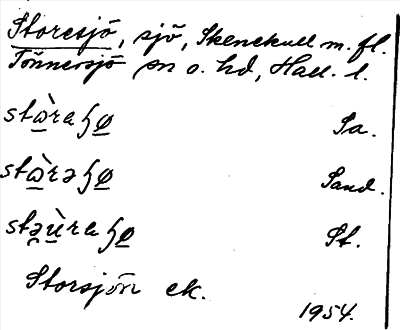 Storesjö, sjö, Skenekull m. fl.
Tönnersjö sn o. hd, Hall. l.
stὼraɧø Sa.
stὼrəɧø Sand.
stəù̱raɧø St.
Storsjön ek.
1954.